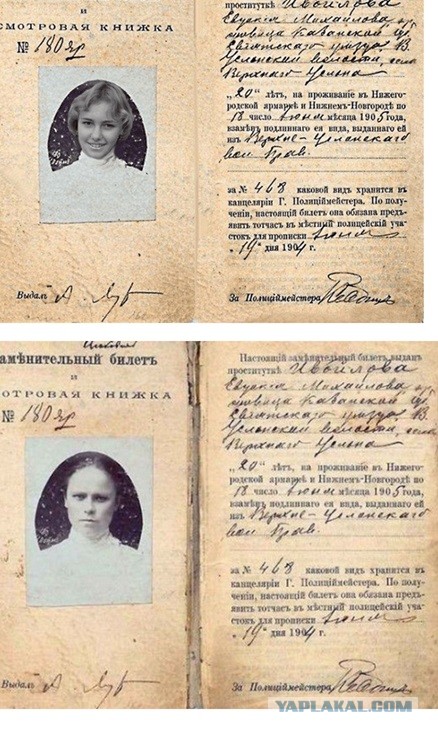 и
СМОТРОВАЯ КНИЖКА
№ 180 яр
Выдалъ
проституткѣ Ивойлова
Евгенія Михайлова
Казанской
Свіяжскаго уѣзда В.
Услонской волости, села
Верхняго Услона
„20" лѣтъ, на проживаніе въ Нижего-
родской ярмаркѣ и Нижнемъ-Новгородѣ по
18 число Іюня мѣсяца 1905 года,
взамѣнъ подлиннаго ея вида, выданнаго ей
изъ Верхне-Услонскаго
вол. Прав.
за № 468 каковой видъ хранится въ
канцеляріи Г. Полиціймейстера. По полу-
ченіи, настоящій билетъ она обязана предъ-
явить тотчасъ въ мѣстный полицейскій уча-
стокъ для прописки Іюня
„19" дня 1904 г.
За Полиціймейстера
замѣнительный билетъ
и
СМОТРОВАЯ КНИЖКА
№ 180 яр
Выдалъ
Настоящій замѣнительный билетъ выданъ
проституткѣ Ивойлова
Евгенія Михайлова
Казанской
Свіяжскаго уѣзда В.
Услонской волости, села
Верхняго Услона
„20" лѣтъ, на проживаніе въ Нижего-
родской ярмаркѣ и Нижнемъ-Новгородѣ по
18 число Іюня мѣсяца 1905 года,
взамѣнъ подлиннаго ея вида, выданнаго ей
изъ Верхне-Услонскаго
вол. Прав.
за № 468 каковой видъ хранится въ
канцеляріи Г. Полиціймейстера. По полу-
ченіи, настоящій билетъ она обязана предъ-
явить тотчасъ въ мѣстный полицейскій уча-
стокъ для прописки Іюня
„19" дня 1904 г.
За Полиціймейстера
YAPLAKAL.COM